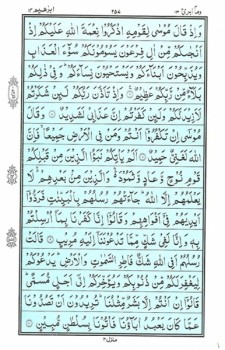 وما ابرئ ١٣ ٢٥٧ ابرٰهيم ١٤
وَإِذْ قَالَ مُوسٰى لِقَوْمِهِ اذْكُرُوا نِعْمَةَ اللّٰهِ عَلَيْكُمْ إِذْ
أَنْجٰكُمْ مِّنْ اٰلِ فِرْعَوْنَ يَسُومُونَكُمْ سُوءَ الْعَذَابِ
وَيُذَبِّحُونَ أَبْنَاءَكُمْ وَيَسْتَحْيُونَ نِسَاءَكُمْ وَفِي ذٰلِكُمْ
بَلَاءٌ مِّنْ رَّبِّكُمْ عَظِيمٌ وَإِذْ تَأَذَّنَ رَبُّكُمْ لَئِنْ شَكَرْتُمْ
لَأَزِيدَنَّكُمْ وَلَئِنْ كَفَرْتُمْ إِنَّ عَذَابِي لَشَدِيدٌ وَقَالَ
مُوسٰى إِنْ تَكْفُرُوا أَنْتُمْ وَمَنْ فِي الْأَرْضِ جَمِيعًا فَإِنَّ
اللّٰهَ لَغَنِيٌّ حَمِيدٌ أَلَمْ يَأْتِكُمْ نَبَؤُا الَّذِينَ مِنْ قَبْلِكُمْ
قَوْمِ نُوحٍ وَّعَادٍ وَّثَمُودَ وَالَّذِينَ مِنْ بَعْدِهِمْ لَا
يَعْلَمُهُمْ إِلَّا اللّٰهُ جَاءَتْهُمْ رُسُلُهُمْ بِالْبَيِّنٰتِ فَرَدُّوا
أَيْدِيَهُمْ فِي أَفْوَاهِهِمْ وَقَالُوا إِنَّا كَفَرْنَا بِمَا أُرْسِلْتُمْ
بِهِ وَإِنَّا لَفِي شَكٍّ مِّمَّا تَدْعُونَنَا إِلَيْهِ مُرِيبٍ قَالَتْ
رُسُلُهُمْ أَفِي اللّٰهِ شَكٌّ فَاطِرِ السَّمٰوٰتِ وَالْأَرْضِ يَدْعُوكُمْ
لِيَغْفِرَ لَكُمْ مِّنْ ذُنُوبِكُمْ وَيُؤَخِّرَكُمْ إِلٰى أَجَلٍ مُّسَمًّى
قَالُوا إِنْ أَنْتُمْ إِلَّا بَشَرٌ مِّثْلُنَا تُرِيدُونَ أَنْ تَصُدُّونَا
عَمَّا كَانَ يَعْبُدُ اٰبَاؤُنَا فَأْتُونَا بِسُلْطٰنٍ مُّبِينٍ
منزل ٣